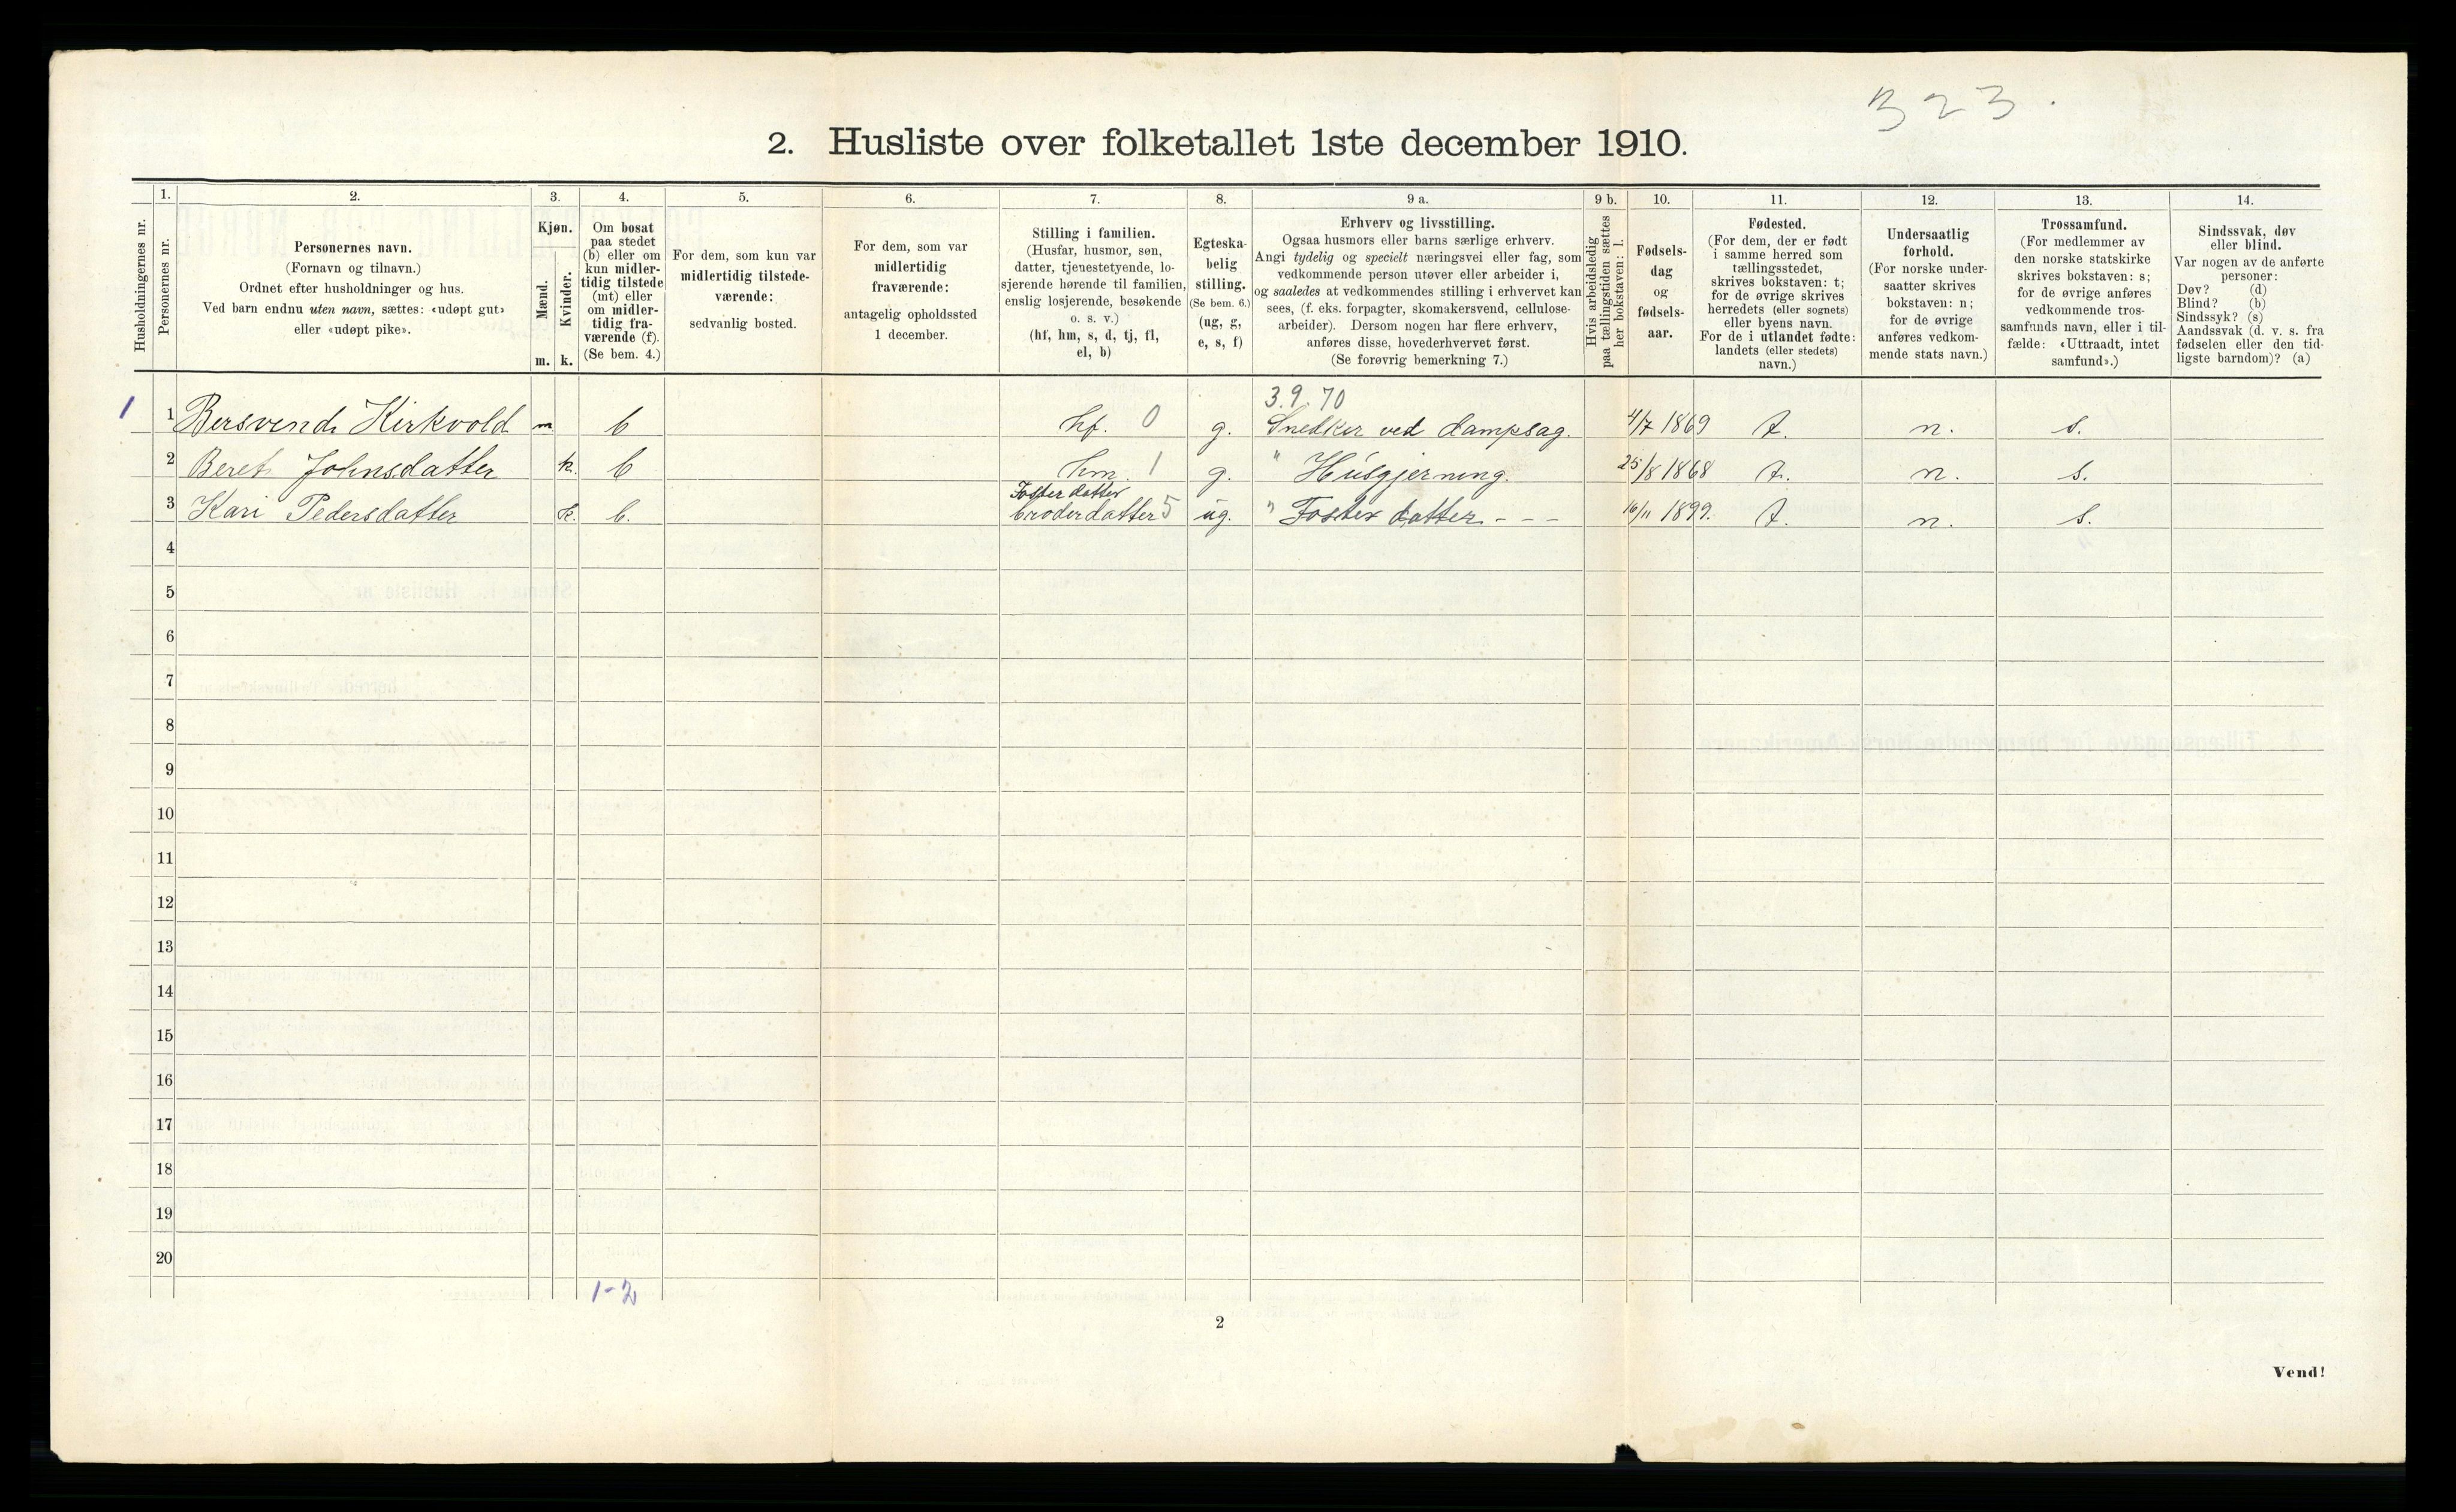 323.
2. Husliste over folketallet 1ste december 1910.
Husholdningernes nr.
1.
Personernes nr.
2.
Personernes navn.
(Fornavn og tilnavn.)
Ordnet efter husholdninger og hus.
Ved barn endnu uten navn, sættes: «udøpt gut»
eller «udøpt pike».
3.
Kjøn.
Mænd.
Kvinder.
m. k.
4.
Om bosat
paa stedet
(b) eller om
kun midler-
tidig tilstede
(mt) eller
om midler-
tidig fra-
værende (f).
(Se bem. 4.)
5.
For dem, som kun var
midlertidig tilstede-
værende:
sedvanlig bosted.
6.
For dem, som var
midlertidig
fraværende:
antagelig opholdssted
1 december.
7.
Stilling i familien.
(Husfar, husmor, søn,
datter, tjenestetyende, lo-
sjerende hørende til familien,
enslig losjerende, besøkende
o. s. v.)
(hf, hm, s, d, tj, fl,
el, b)
8.
Egteska-
belig
stilling.
(Se bem. 6.)
(ug, g,
e, s, f)
9 a.
Erhverv og livsstilling.
Ogsaa husmors eller barns særlige erhverv.
Angi tydelig og specielt næringsvei eller fag, som
vedkommende person utøver eller arbeider i,
og saaledes at vedkommendes stilling i erhvervet kan
sees, (f. eks. forpagter, skomakersvend, cellulose-
arbeider). Dersom nogen har flere erhverv,
anføres disse, hovederhvervet først.
(Se forøvrig bemerkning 7.)
9 b.
Hvis arbeidsledig
paa tællingstiden sættes
her bokstaven: l.
10.
Fødsels-
dag
og
fødsels-
aar.
11.
Fødested.
(For dem, der er født
i samme herred som
tællingsstedet,
skrives bokstaven: t;
for de øvrige skrives
herredets (eller sognets)
eller byens navn.
For de i utlandet fødte:
landets (eller stedets)
navn.)
12.
Undersaatlig
forhold.
(For norske under-
saatter skrives
bokstaven: n;
for de øvrige
anføres vedkom-
mende stats navn.)
13.
Trossamfund.
(For medlemmer av
den norske statskirke
skrives bokstaven: s;
for de øvrige anføres
vedkommende tros-
samfunds navn, eller i til-
fælde: «Uttraadt, intet
samfund».)
14.
Sindssvak, døv
eller blind.
Var nogen av de anførte
personer:
Døv? (d)
Blind? (b)
Sindssyk? (s)
Aandssvak (d. v. s. fra
fødselen eller den tid-
ligste barndom)? (a)
3.9.70
1 1 Bersvend Kirkvold m b hf. 0 g. Snedker ved dampsag. 4/7 1869 t. n. s.
2 Beret Johnsdatter k. b hm. 1 g. " Husgjerning. 25/8 1868 t. n. s.
Foster datter
3 Kari Pedersdatter k. b. broderdatter 5 ug. " Foster datter - - - 16/11 1899. t. n. s.
4
5
6
7
8
9
10
11
12
13
14
15
16
17
18
19
20
1-2
2
Vend!